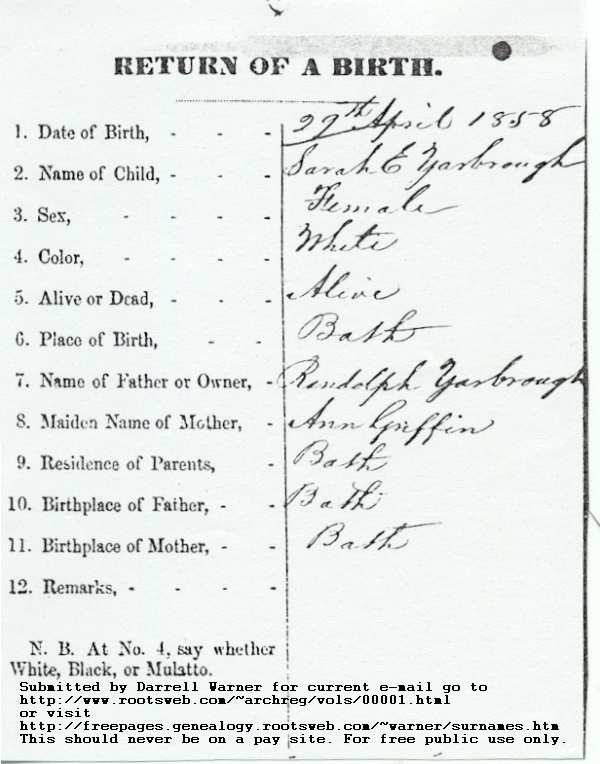 RETURN OF A BIRTH.
1. Date of Birth, - - - April 1858
2. Name of Child, - - - Sarah E Yarbrough
3. Sex, - - - - Female
4. Color, - - - - White
5. Alive or Dead, - - - Alive
6. Place of Birth, - - Bath
7. Name of Father or Owner, - Randolph Yarbrough
8. Maiden Name of Mother, - Ann Griffin
9. Residence of Parents, - Bath
10. Birthplace of Father, - - Bath
11. Birthplace of Mother, - - Bath
12. Remarks, - - - -
N. B. At No. 4, say whether
White, Black, or Mulatto.
Submitted by Darrell Warner for current e-mail go to
http://www.rootsweb.com/~archreg/vols/00001.html
or visit
http://freepages.genealogy.rootsweb.com/~warner/surnames.htm
This should never be on a pay site. For free public use only.